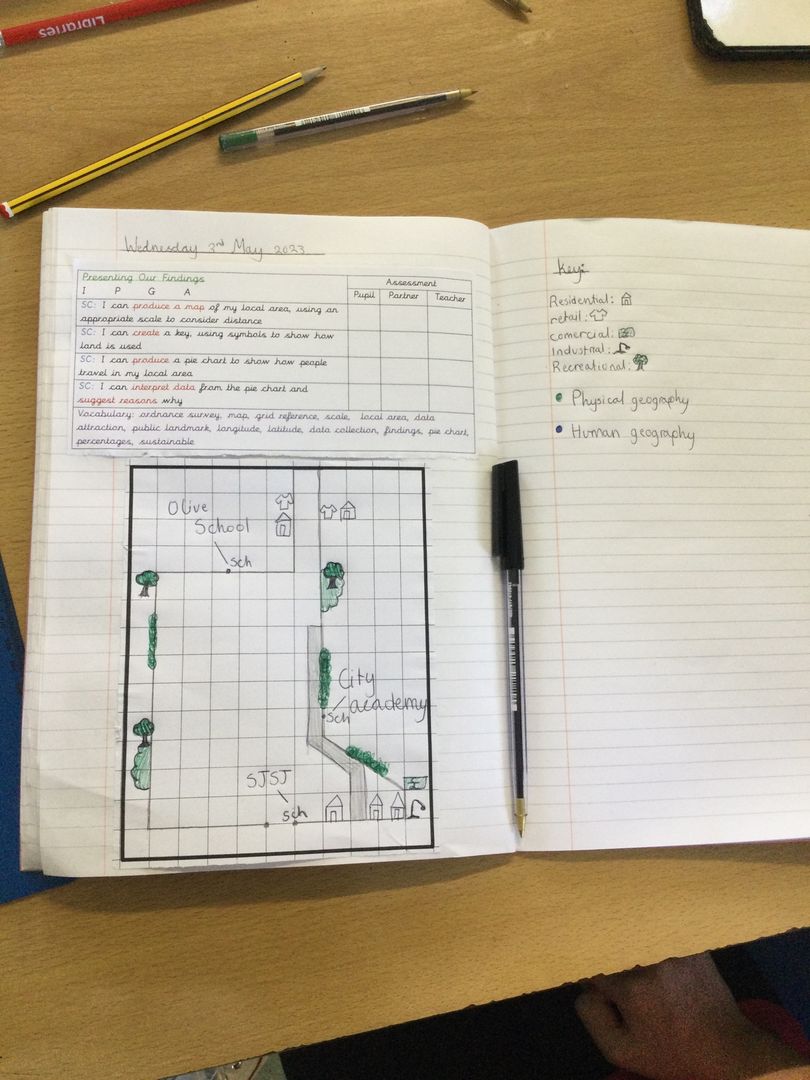 Libraries
Wednesday 3rd May 2023
Presenting Our Findings
I P G A
Assessment
Pupil Partner Teacher
SC: I can produce a map of my local area, using an
appropriate scale to consider distance
SC: I can create a key, using symbols to show how
land is used
SC: I can produce a pie chart to show how people
travel in my local area
SC: I can interpret data from the pie chart and
suggest reasons why
Vocabulary: ordnance survey, map, grid reference, scale, local area, data
attraction, public landmark, longitude, latitude, data collection, findings, pie chart,
percentages, sustainable
Olive
School
Sch
City
academy
Sch
SJSJ
Sch
Key:
Residential:
retail:
comercial:
Industrial:
Recreational:
Physical geography
Human geography